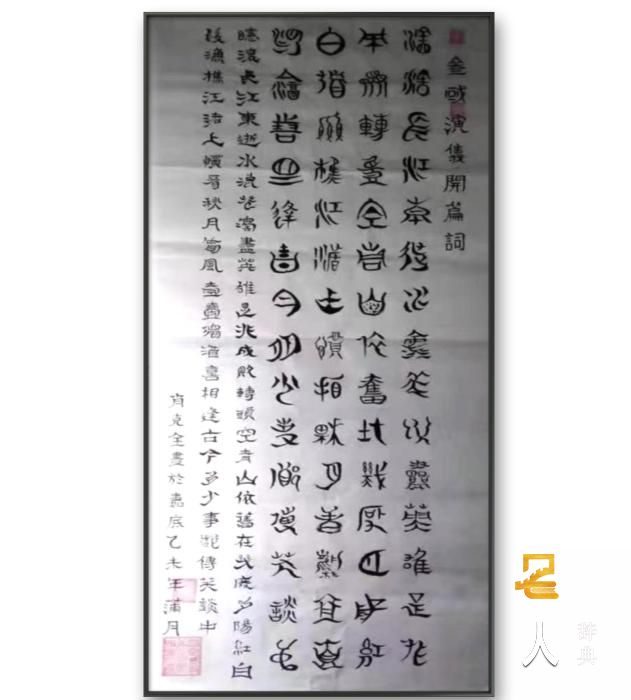 叁國演義開篇詞
滾滾長江東逝水浪花淘盡英雄是非
成敗轉頭空青山依舊在幾度夕陽紅
白髮漁樵江渚上慣看秋月春風壹壺
濁酒喜相逢古今多少事都付笑談中
滾滾長江東逝水浪花淘盡英雄是非成敗轉頭空青山依舊在幾度夕陽紅白
髮漁樵江渚上慣看秋月春風壹壺濁酒喜相逢古今多少事都付笑談中
肖克全書於乙未年蒲月
名人
辞典